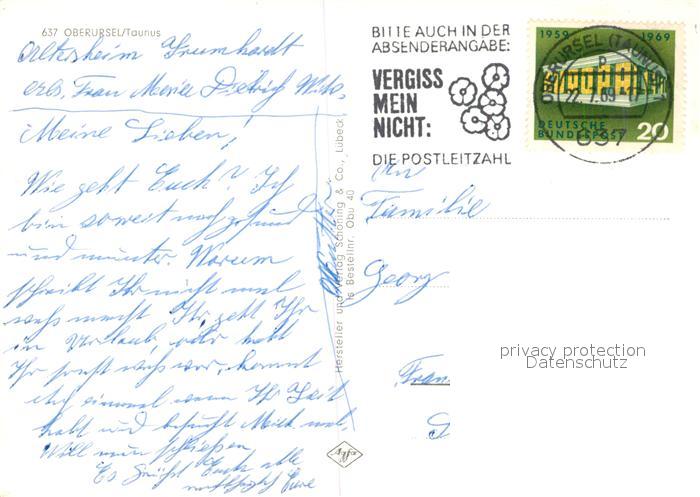 637 OBERURSEL/Taunus
Altersheim Trumhardt
Frau Maria Dietrich Wtw.
Meine Lieben!
Wie geht Euch? Ich
bin soweit noch gesund
und munter. Warum
schreibt Ihr nicht mal
was macht Ihr geht Ihr
in Urlaub, oder habt
Ihr sonst was vor, kommt
einmal wenn Ihr Zeit
habt und besucht Mich mal,
Will nun schließen
Es Grüßt Euch alle
Eure
Mutter
Hersteller und Verlag Schöning & Co., Lübeck
Bestellnr. Obu 40
Agfa
BITTE AUCH IN DER
ABSENDERANGABE:
VERGISS
MEIN
NICHT:
DIE POSTLEITZAHL
1959 1969
DEUTSCHE
BUNDESPOST 20
OBERURSEL (TAUNUS)
b
22.7.69-17
637
An
Familie
Georg
Fran
privacy protection
Datenschutz